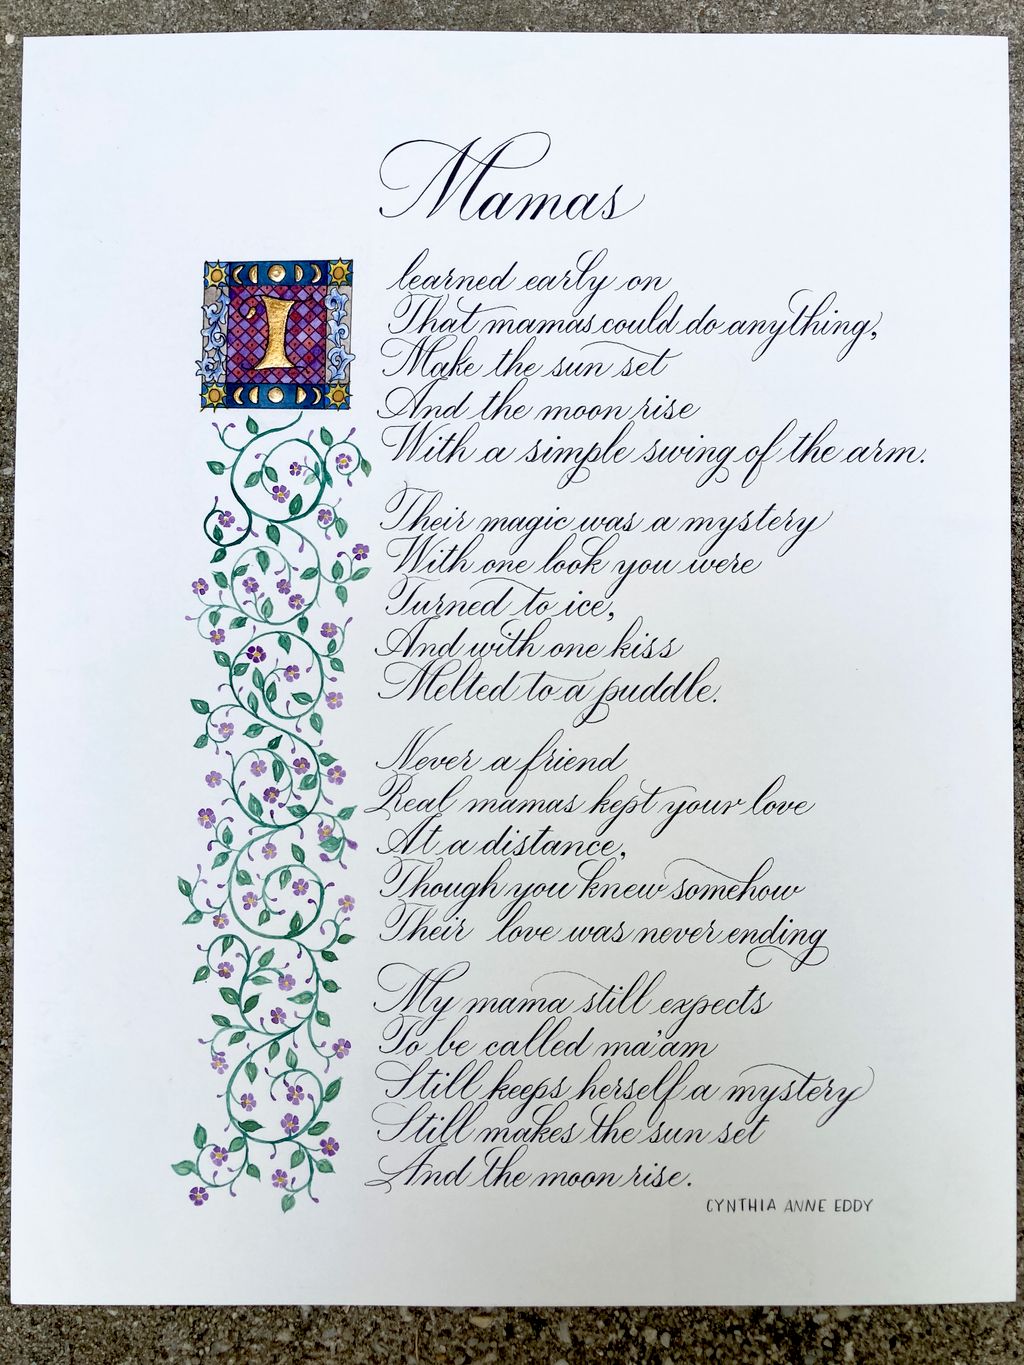 Mamas
I learned early on
That mamas could do anything,
Make the sun set
And the moon rise
With a simple swing of the arm.
Their magic was a mystery
With one look you were
Turned to ice,
And with one kiss
Melted to a puddle.
Never a friend
Real mamas kept your love
At a distance,
Though you knew somehow
Their love was never ending
My mama still expects
To be called ma'am
Still keeps herself a mystery
Still makes the sun set
And the moon rise.
CYNTHIA ANNE EDDY